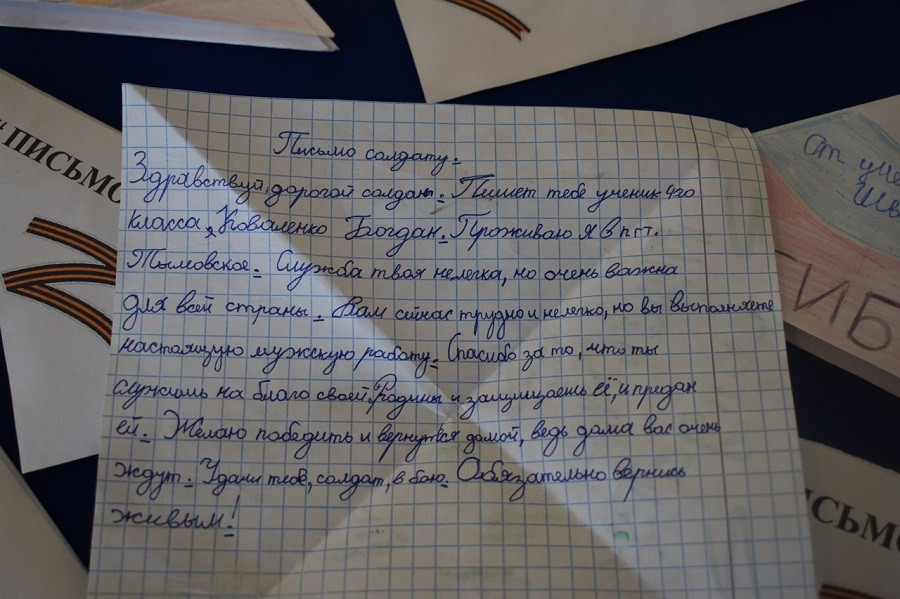 Письмо солдату.
Здравствуй, дорогой солдат. Пишет тебе ученик 4го
класса, Коваленко Богдан. Проживаю я в пгт.
Тымовское. Служба твоя нелегка, но очень важна
для всей страны. Вам сейчас трудно и нелегко, но вы выполняете
настоящую мужскую работу. Спасибо за то, что ты
служишь на благо своей Родины и защищаешь её, и предан
ей. Желаю победить и вернуться домой, ведь дома вас очень
ждут. Удачи тебе, солдат, в бою. Обязательно вернись
живым!
"ПИСЬМО
От уче
ИБ
СЬМО